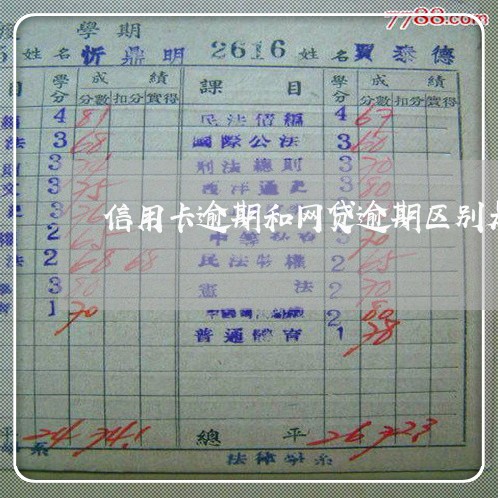 7788.com
學期
姓名 忻鼎明 2616 姓名 賈泰德
目 學分 成績 課目 學分 成績
分數 扣分 實得 分數 扣分 實得
4 81 民法債編 4 67
法 3 68 國際公法 3 60
3 刑法總則 3 70
3 75 西洋通史 3 80
信用卡逾期和网贷逾期区别
2 65 70
法 2 68 68 民法物權 2 65
3 80 憲法 2 70
1 70 2 80
普通體育 1 78
平 24 74.1 總平 26 72.3
系 法律學系